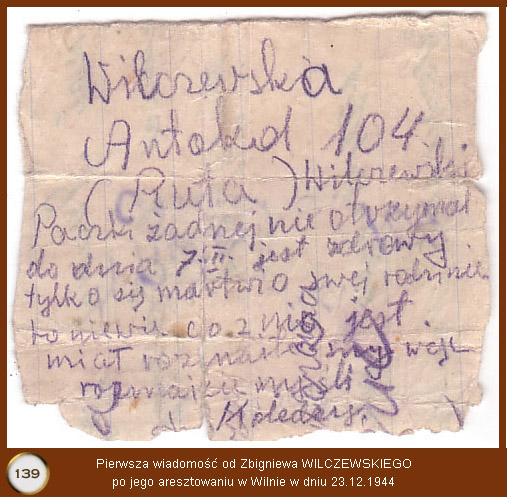 Wilczewska
Antokol 104
(Ruta) Wilczewski
Paczki żadnej nie otrzymał
do dnia 7.II. jest zdrowy
tylko się martwi o swej rodzinie
bo niewie co z nią jest
miał
myśli
Koledzy.
139
Pierwsza wiadomość od Zbigniewa WILCZEWSKIEGO
po jego aresztowaniu w Wilnie w dniu 23.12.1944